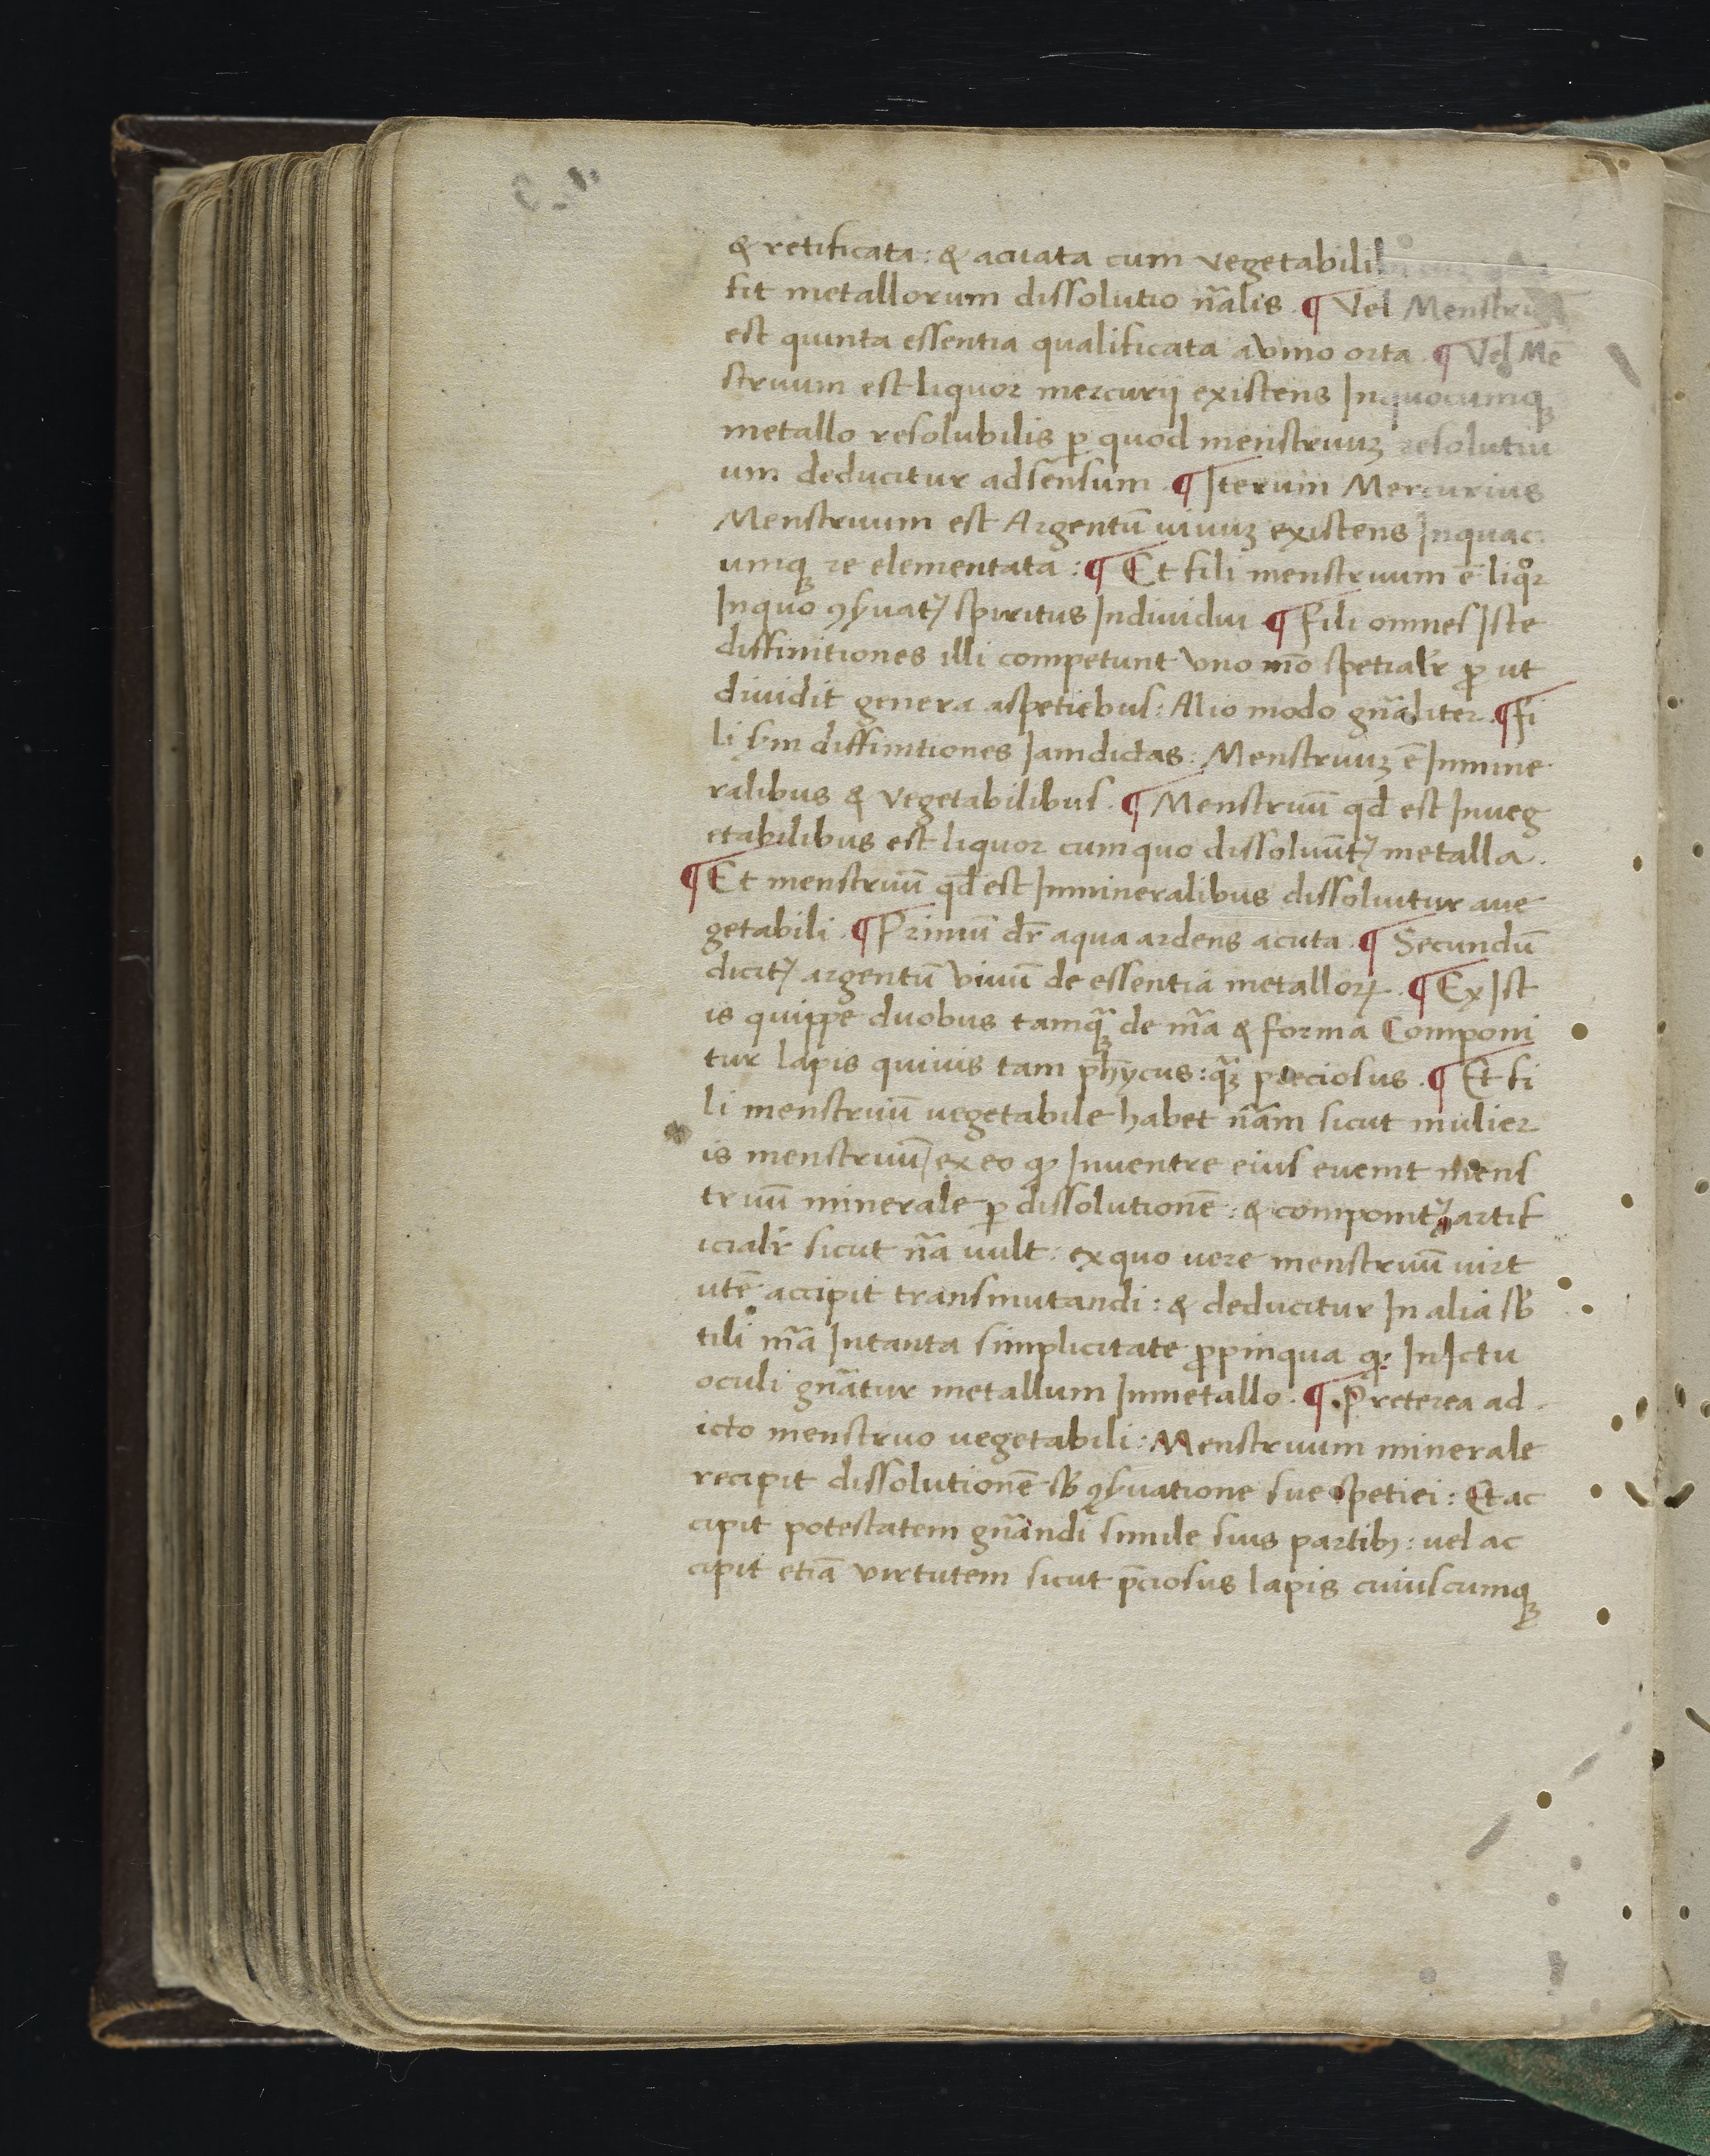 & retificata : & acuata cum vegetabilib
fit metallorum dissolutio nãlis . ¶ Vel Menstruũ
est quinta essentia qualificata auino orta . ¶ Vel Mẽ
struum est liquor mercurij existens Inquocumqꝫ
metallo resolubilis ꝑ quod menstruuꝫ resolutiu
um deducitur adsensum . ¶ Iterum Mercurius
Menstruum est Argentũ uiuuꝫ existens Inquac
umqꝫ re elementata : ¶ Et fili menstruum ẽ liqͦr
Inquo ꝯẜuatᷣ spiritus Indiuidui ¶ Fili omnes Iste
diffinitiones illi competunt vno mõ spetialr̃ ꝓ ut
diuidit genera aspetiebus : Alio modo gñaliter . ¶ fi
li ẜm diffinitiones Iamdictas : Menstruuꝫ ẽ Inmine
ralibus & vegetabilibus . ¶ Menstruũ qd̃ est Inueg
etabilibus est liquor cumquo dissoluũtᷣ metalla .
¶ Et menstruũ qd̃ est Inmineralibus dissoluitur aue
getabili . ¶ Primũ dr̃ aqua ardens acuta . ¶ Secundũ
dicitᷣ argentũ viuũ de essentia metalloꝝ . ¶ Ex Ist
is quippe duobus tamqꝫ̃ de mã & forma Componi
tur lapis quiuis tam ph̃ycus : qꝫ̃ preciosus . ¶ Et fi
li menstruũ vegetabile habet nãm sicut mulier
is menstruũ / ex eo ꝙ Inuentre eius euenit mens
truũ minerale ꝑ dissolutionẽ : & componitᷣ artif
icialr̃ sicut nã uult : exquo uere menstruũ uirt
utẽ accipit transmutandi : & deducitur In aliã sb̃
tili mã Intanta simplicitate ꝓpinqua ꝙ InIctu
oculi gñatur metallum Inmetallo . ¶ Preterea ad
icto menstruo vegetabili : Menstruum minerale
recipit dissolutionẽ sb̃ ꝯẜuatione sue spetiei : Et ac
cipit potestatem gñandi simile suis partibꝫ : uel ac
cipit etiã virtutem sicut p̃ciosus lapis cuiuscumqꝫ